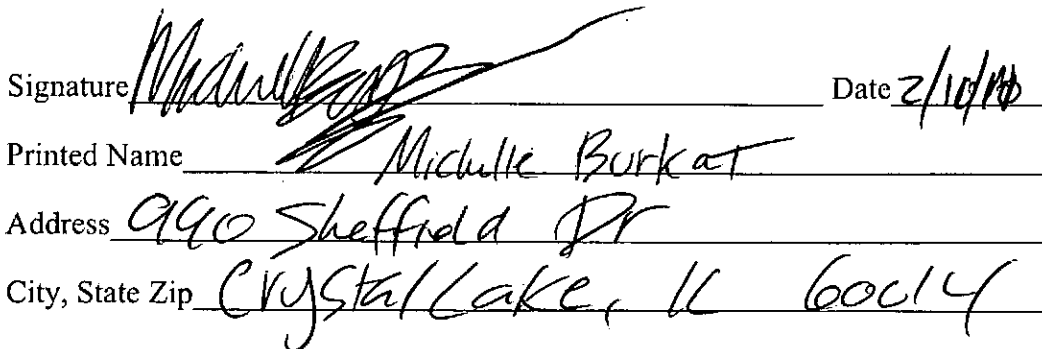 Signature Michelle Burkat Date 2/10/10
Printed Name Michelle Burkat
Address 990 Sheffield Dr
City, State Zip Crystal Lake, IL 60014